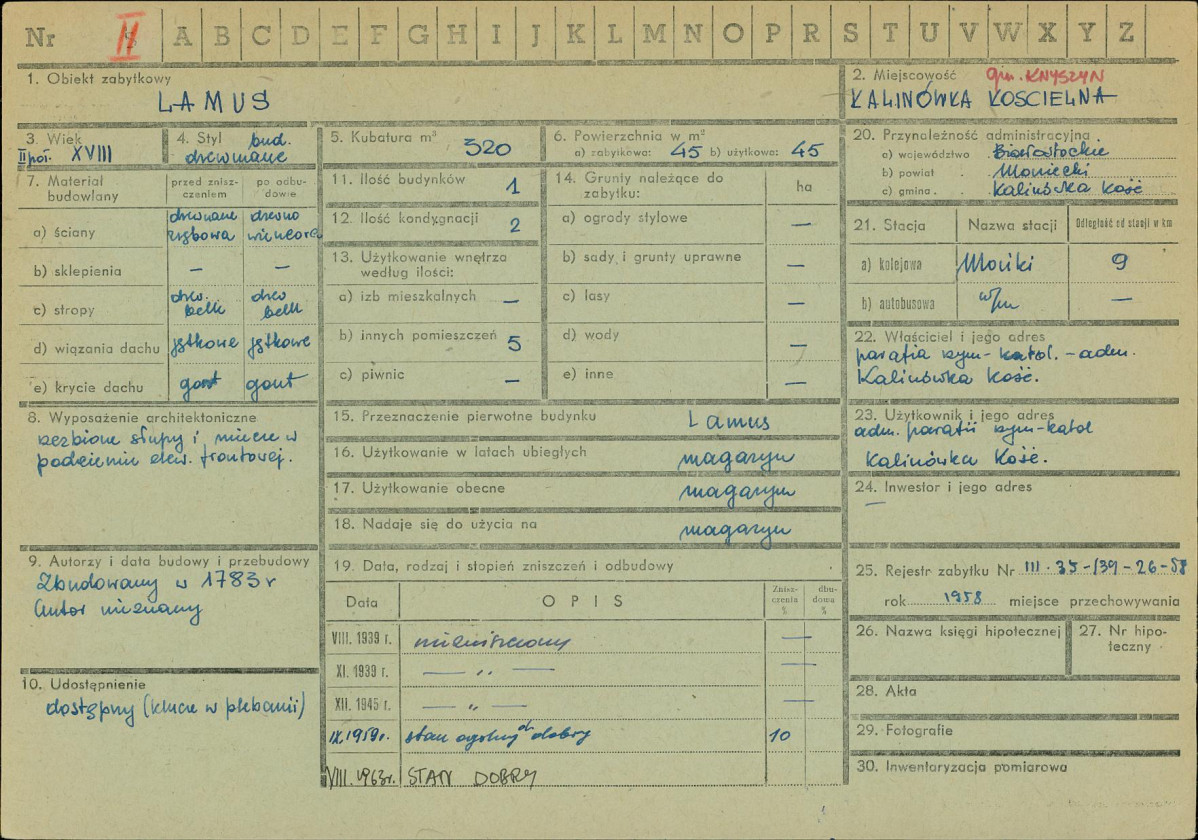 Nr II A B C D E F G H I J K L M N O P R S T U V W X Y Z
1. Obiekt zabytkowy
LAMUS
2. Miejscowość gm. KNYSZYN
KALINÓWKA KOSCIELNA
3. Wiek
II poł. XVIII
4. Styl bud.
drewniane
5. Kubatura m³ 320
6. Powierzchnia w m²
a) zabytkowa: 45 b) użytkowa: 45
7. Materiał budowlany
przed zniszczeniem
po odbudowie
a) ściany
drewniane zrębowa
drewno wieńcowa
b) sklepienia — —
c) stropy
drew. belk
drew belk
d) wiązania dachu jętkowe jętkowe
e) krycie dachu gont gont
8. Wyposażenie architektoniczne
rzeźbione słupy i miecze w
podcieniu elew. frontowej.
9. Autorzy i data budowy i przebudowy
Zbudowany w 1783 r
Autor nieznany
10. Udostępnienie
dostępny (klucze w plebanii)
11. Ilość budynków 1
12. Ilość kondygnacji 2
13. Użytkowanie wnętrza
według ilości:
a) izb mieszkalnych —
b) innych pomieszczeń 5
c) piwnic —
14. Grunty należące do
zabytku:
ha
a) ogrody stylowe —
b) sady i grunty uprawne —
c) lasy —
d) wody —
e) inne —
15. Przeznaczenie pierwotne budynku Lamus
16. Użytkowanie w latach ubiegłych magazyn
17. Użytkowanie obecne magazyn
18. Nadaje się do użycia na magazyn
19. Data, rodzaj i stopień zniszczeń i odbudowy
Data OPIS Zniszczenia % dbudowa %
VIII. 1939 r. niezniszczony —
XI. 1939 r. — „ — —
XII. 1945 r. — „ — —
IX 1959 r. stan ogólny d. dobry 10
VIII. 1963 r. STAN DOBRY
20. Przynależność administracyjna
a) województwo Białostockie
b) powiat Moniecki
c) gmina Kalinówka Kość
21. Stacja Nazwa stacji Odległość od stacji w km
a) kolejowa Mońki 9
b) autobusowa w/m —
22. Właściciel i jego adres
parafia rzym-katol. - adm.
Kalinówka Kość.
23. Użytkownik i jego adres
adm. parafii rzym-katol
Kalinówka Kość.
24. Inwestor i jego adres
—
25. Rejestr zabytku Nr III-35-/39-26-58
rok 1958 miejsce przechowywania
26. Nazwa księgi hipotecznej
27. Nr hipoteczny
28. Akta
29. Fotografie
30. Inwentaryzacja pomiarowa